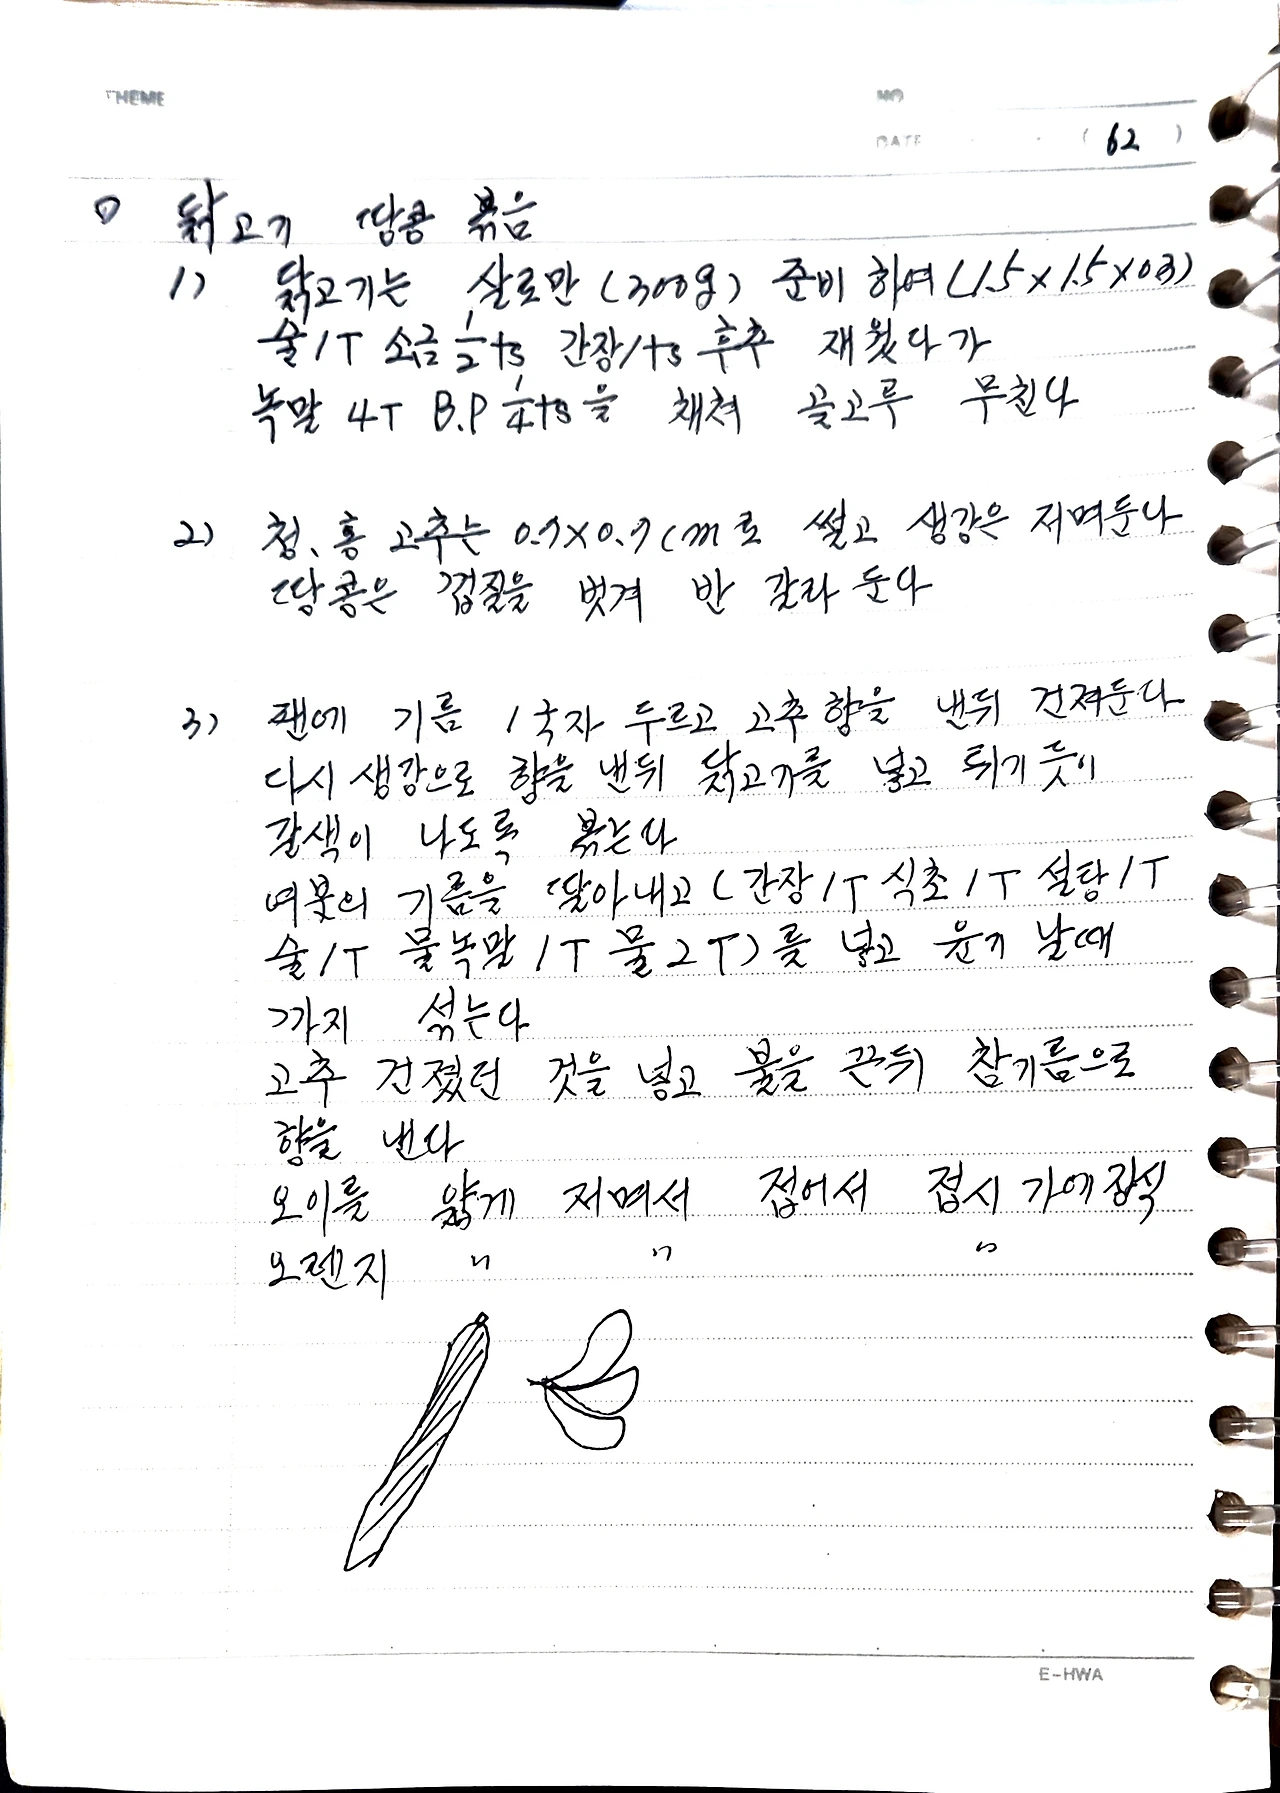 THEME
NO
DATE . . ( 62 )
닭고기 땅콩 볶음
1) 닭고기는 살로만 (300g) 준비하여 (1.5×1.5×0.3)
술1T 소금 1/2ts 간장1ts 후추 재웠다가
녹말 4T B.P 1/4ts을 채쳐 골고루 무친다
2) 청,홍 고추는 0.7×0.7cm로 썰고 생강은 저며둔다
땅콩은 껍질을 벗겨 반 갈라 둔다
3) 팬에 기름 1국자 두르고 고추향을 낸뒤 건져둔다
다시 생강으로 향을 낸뒤 닭고기를 넣고 튀기듯이
갈색이 나도록 볶는다
여분의 기름을 딸아내고 (간장1T 식초1T 설탕1T
술1T 물녹말1T 물2T)를 넣고 윤기 날때
까지 섞는다
고추 건졌던 것을 넣고 불을 끈뒤 참기름으로
향을 낸다
오이를 얇게 저며서 접어서 접시 가에 장식
오렌지 " " "
E-HWA